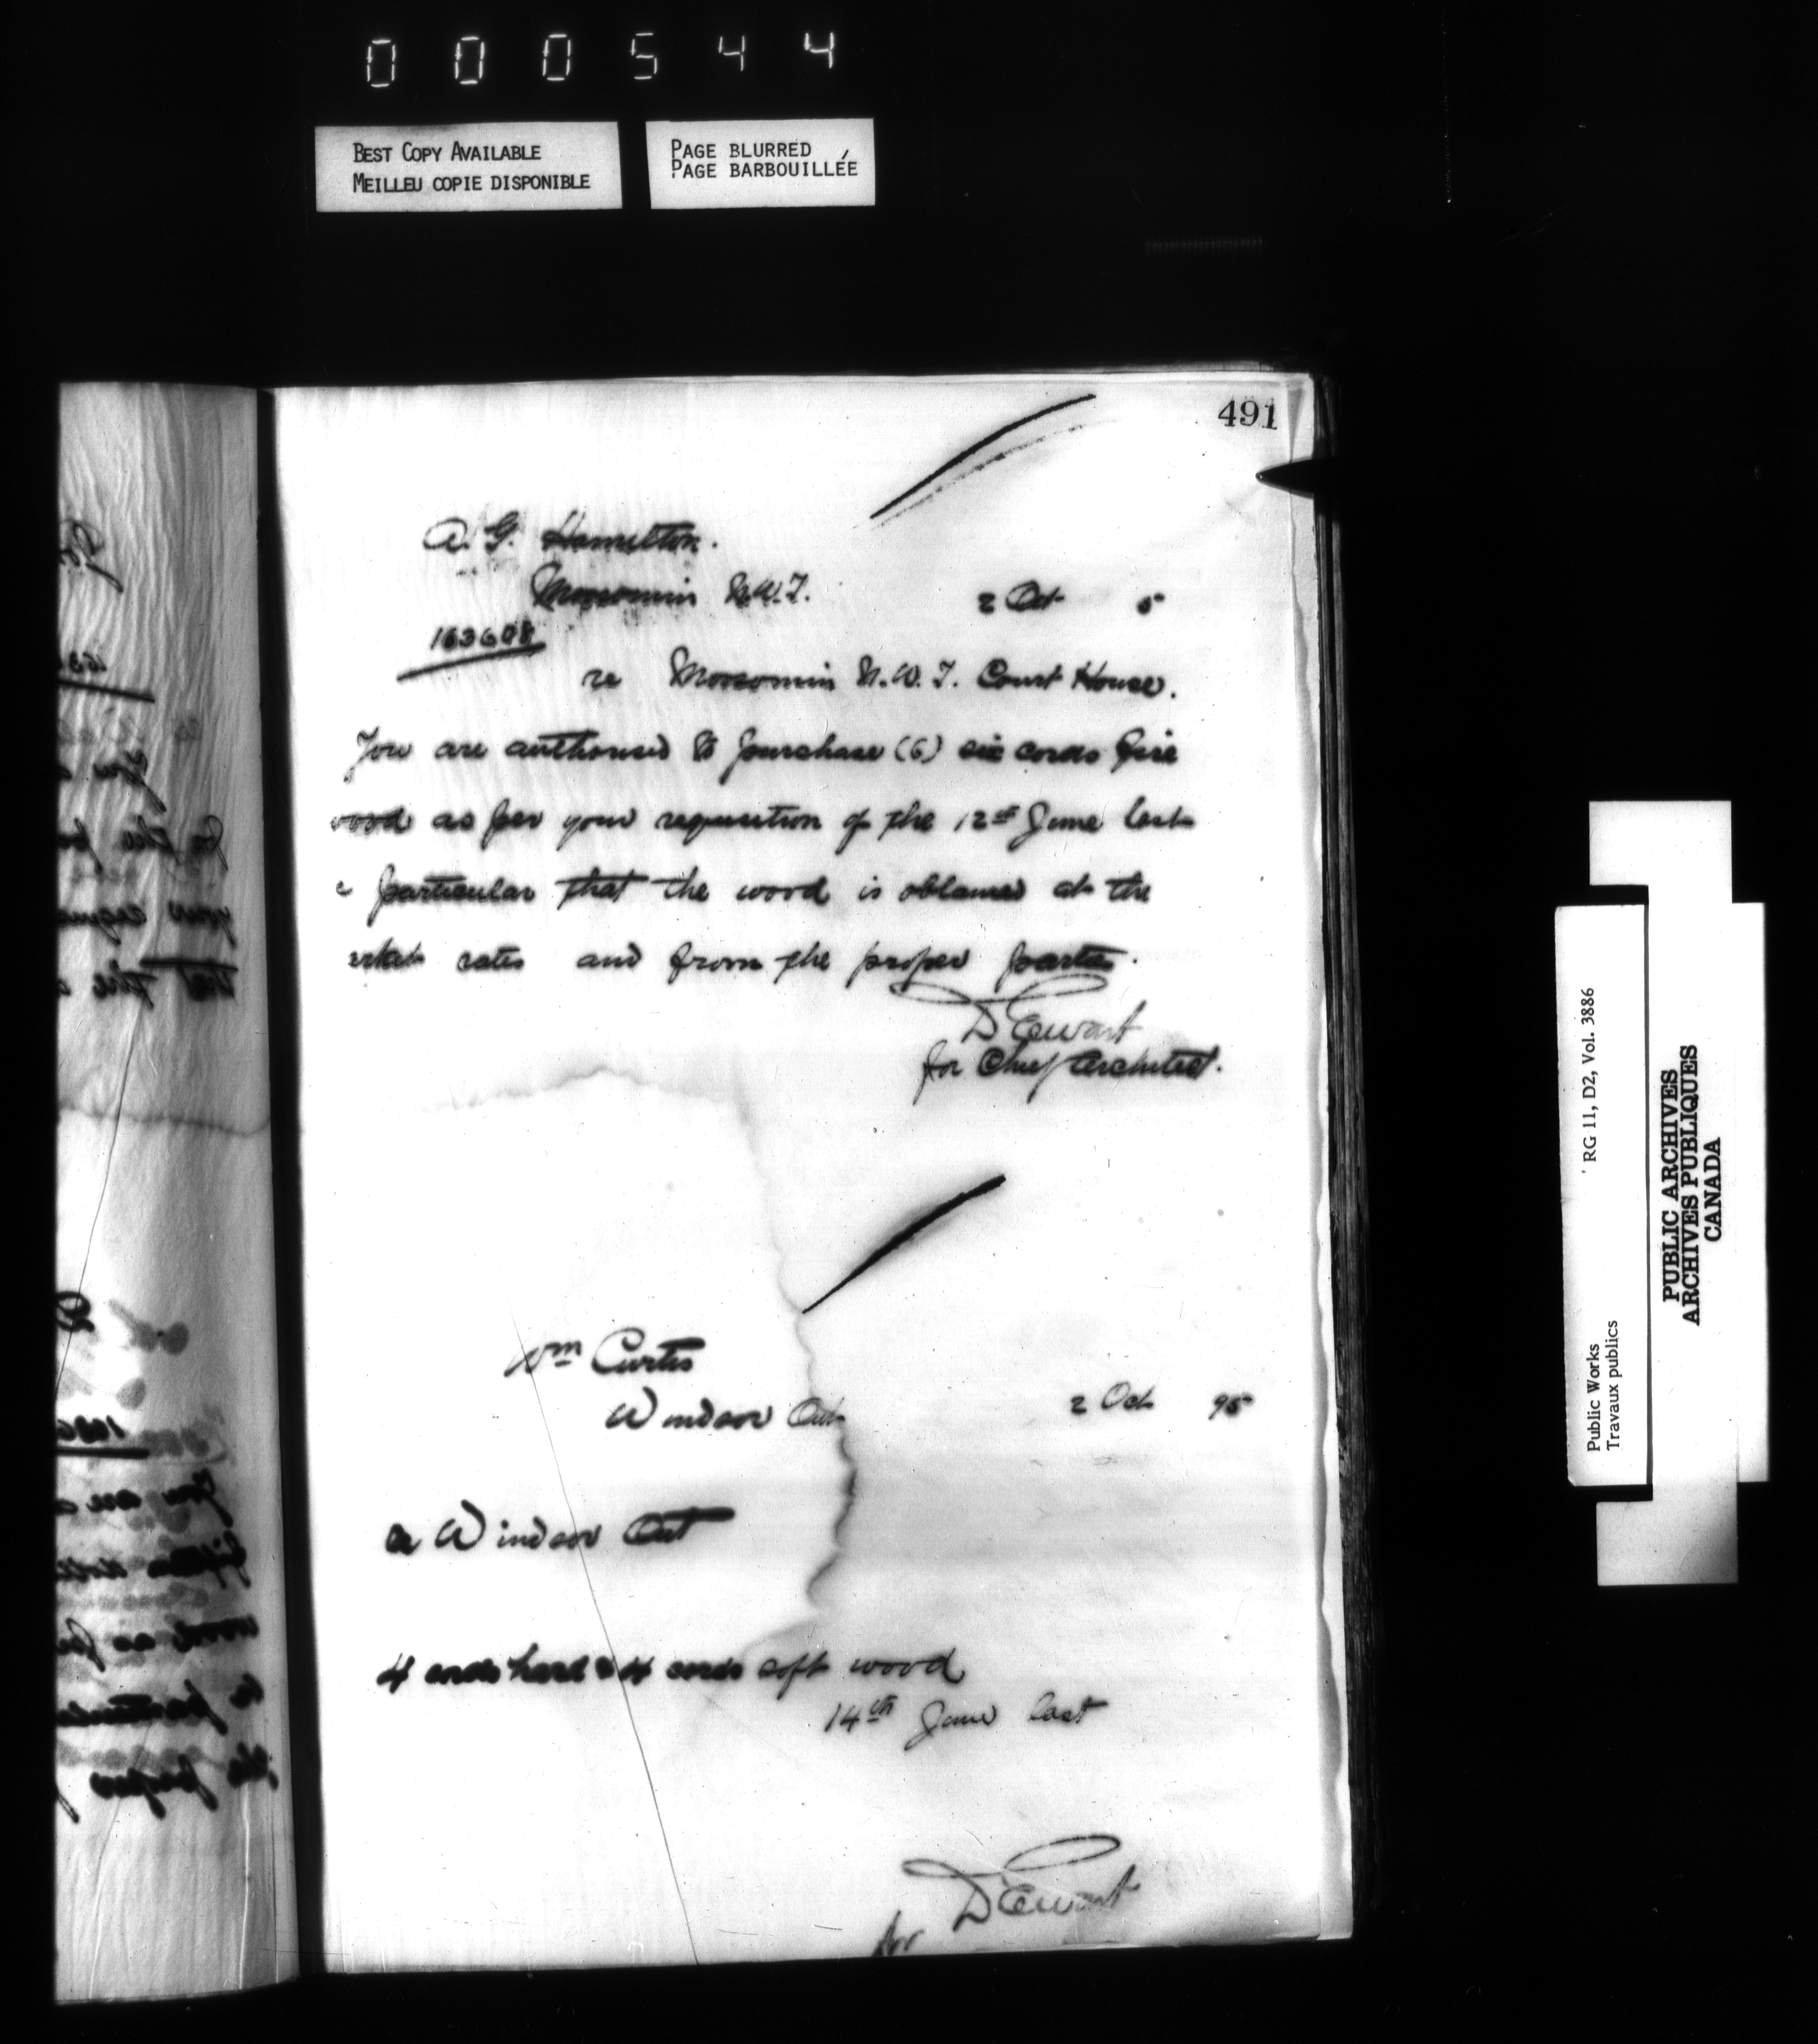 000544
BEST COPY AVAILABLE
MEILLEU COPIE DISPONIBLE
PAGE BLURRED
PAGE BARBOUILLÉE
491
A. G. Hamilton.
Moosomin N.W.T.
2 Oct 5
163608
re Moosomin N.W.T. Court House.
You are authorised to purchase (6) six cords fire
wood as per your requisition of the 12th June last
e particular that the wood is obtained at the
rket rates and from the proper parties.
D Ewart
for Chief Architect.
Wm Curtis
Windsor Ont
2 Oct 95
re Windsor Ont
4 cords hard & 4 cords soft wood
14th June last
D Ewart
for
Public Works
Travaux publics
RG 11, D2, Vol. 3886
PUBLIC ARCHIVES
ARCHIVES PUBLIQUES
CANADA